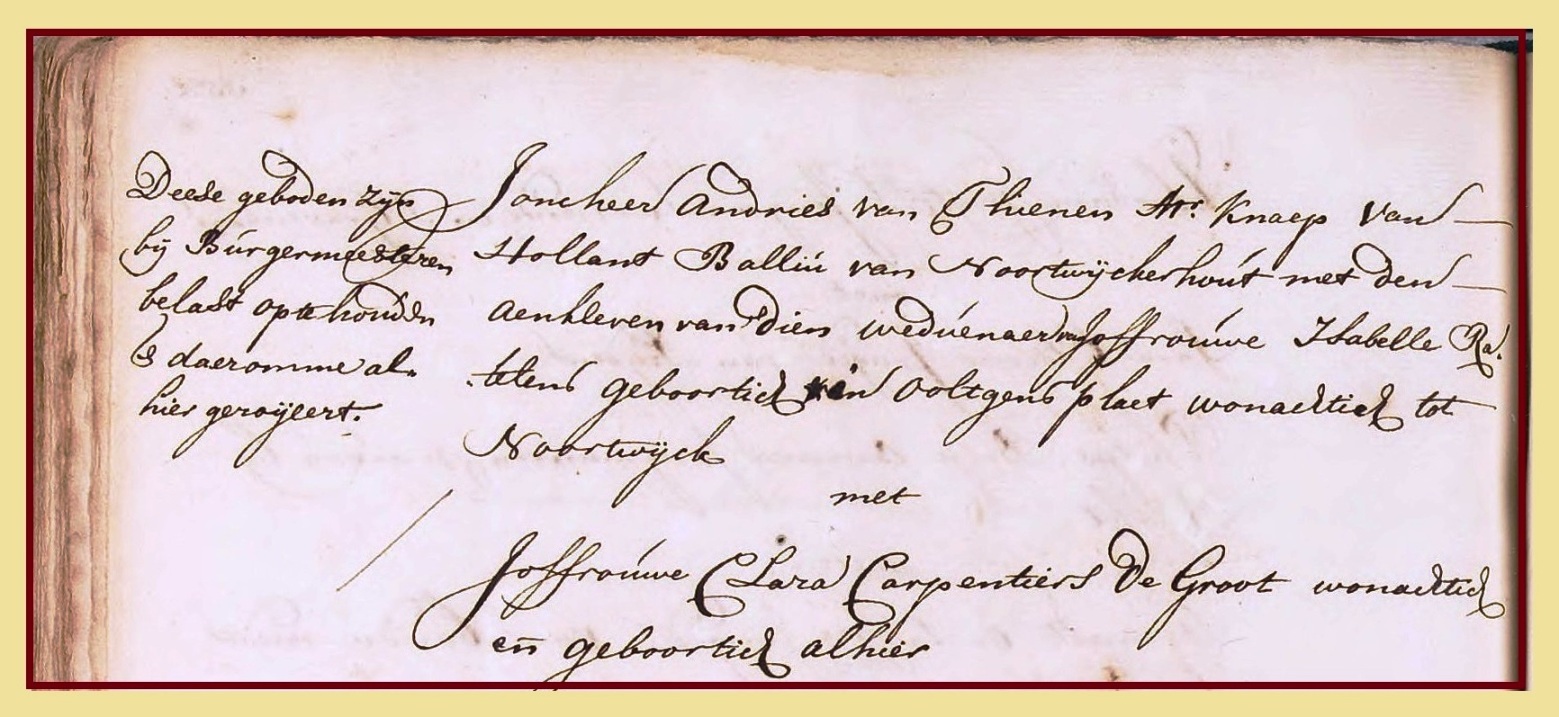 Deese geboden zyn
by Burgermeesteren
belast opte houden
& daeromme al=
hier geroijeert.
Joncheer Andries van Thienen Knaep van
Hollant Balliu van Noortwijckerhout met den
aenkleven van dien weduenaer van Joffrouwe Isabelle Ra=
telens geboortich in ooltgens plaet wonachtich tot
Noortwijck
met
Joffrouwe Clara Carpentiers De Groot wonachtich
en̄ geboortich alhier